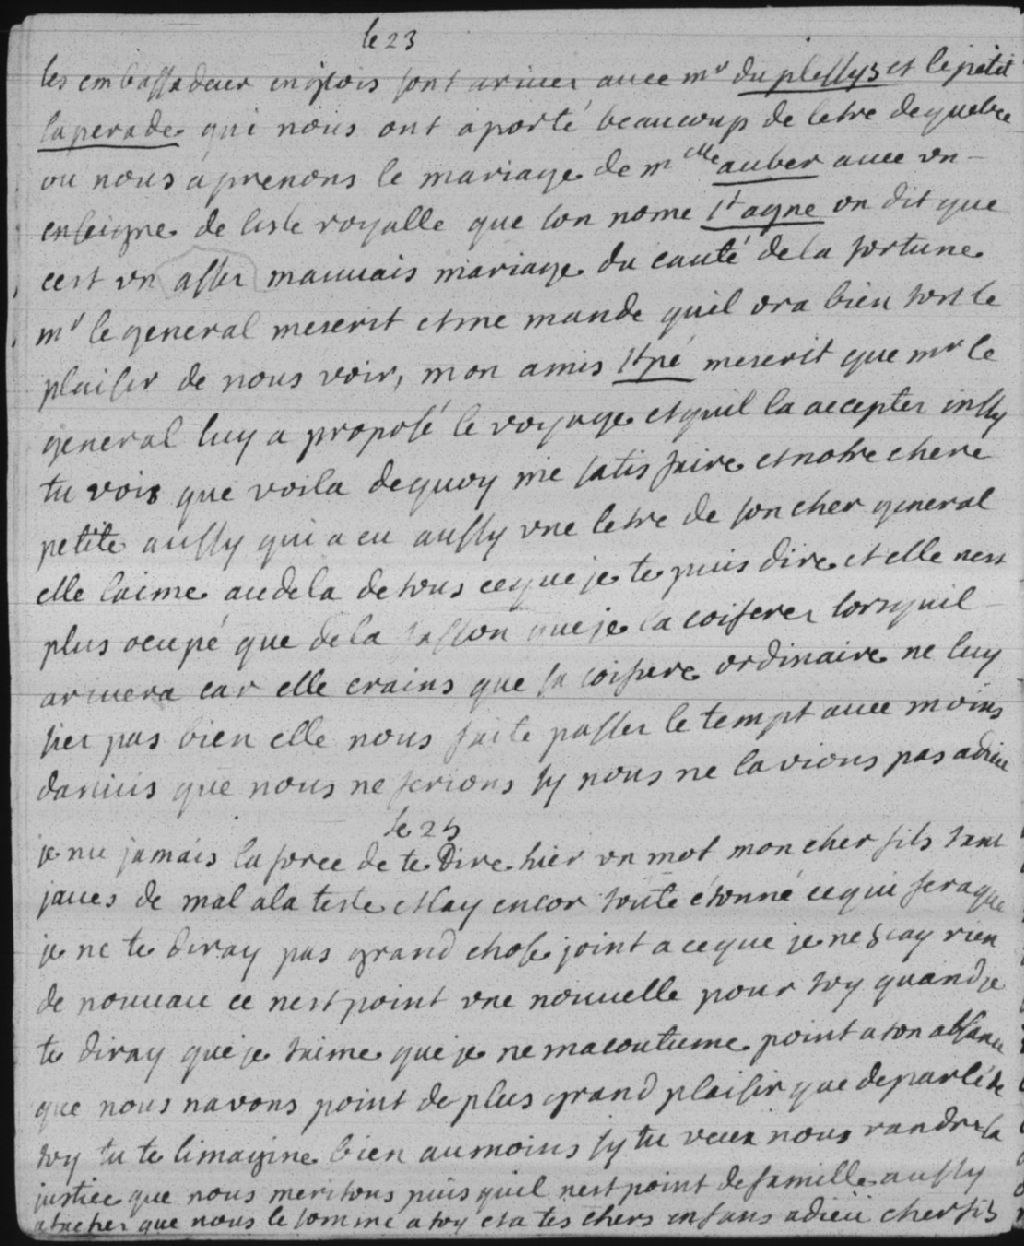 le 23
les embassadeur englois sont arivez avec mr du plessys et le petit
laperade qui nous ont aporté beaucoup de letre de quebec
ou nous aprenons le mariage de m elle auber avec vn
enseigne de lisle royalle que lon nome st agne on dit que
cest vn asser mauuais mariage du cauté dela fortune
mr le general mescrit et me mande quil ora bien tost le
plaisir de nous voir, mon amis st pé mescrit que mr le
general luy a proposé le voyage et quil la accepter insy
tu vois que voila dequoy me satisfaire et notre chere
petite aussy qui a eu aussy vne letre de son cher general
elle laime audela de tous ceque je te puis dire et elle nest
plus ocupé que dela fasson que je la coiferez lorsquil
arivera car elle crains que sa coifure ordinaire ne luy
siez pas bien elle nous faite passer le tempt avec moins
danuis que nous ne serions sy nous ne lavions pas adieu
le 25
je nu jamais la force de te dire hier vn mot mon cher fils tant
javes de mal ala teste et lay encor toute étonné ce qui sera que
je ne te diray pas grand chose joint a ceque je ne scay rien
de nouuau ce nest point vne nouuelle pour toy quand je
te diray que je taime que je ne macoutume point a ton absance
que nous navons point de plus grand plaisir que de parlé de
toy tu te limagine bien aumoins sy tu veux nous randre la
justice que nous meritons puis quil nest point de famille aussy
atacher que nous le somme a toy et a tes chers enfans adieu cher fils